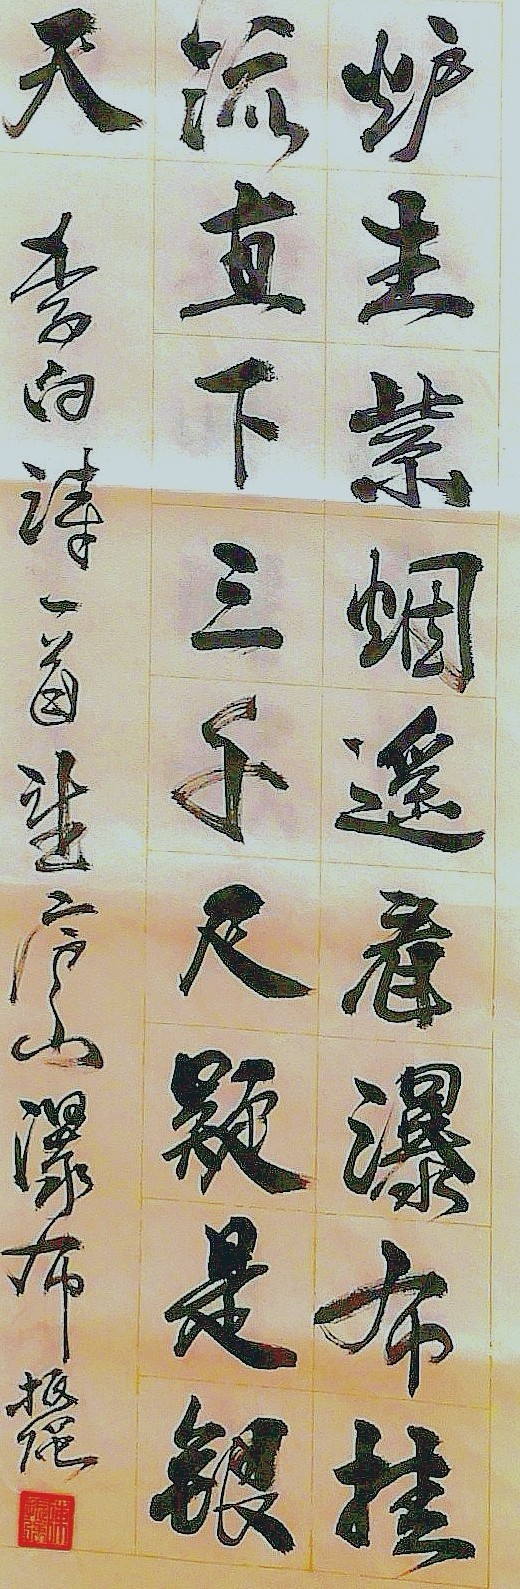 炉生紫烟遥看瀑布挂
流直下三千尺疑是银
天 李白诗一首望庐山瀑布